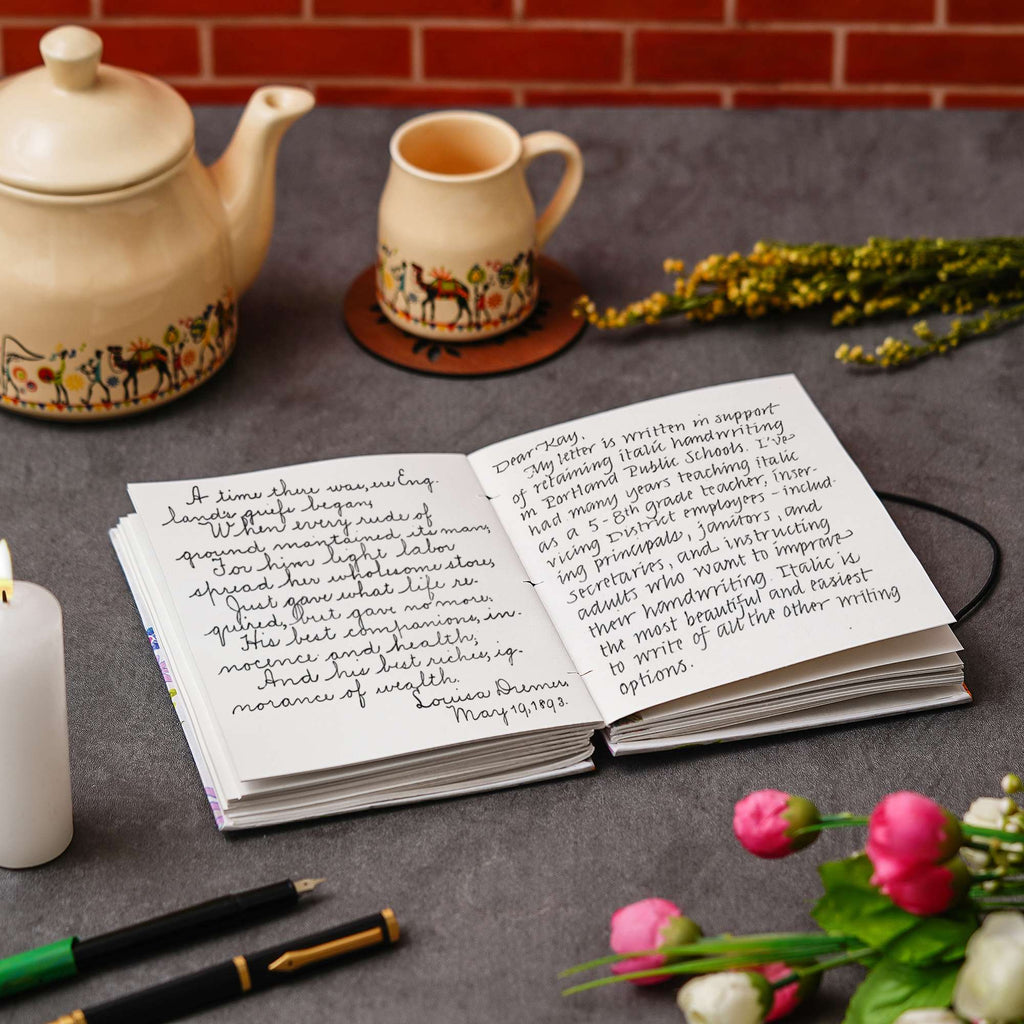 A time there was, ere Eng-
land's griefs began,
When every rude of
ground maintained its man;
For him light labor
spread her wholesome stores
Just gave what life re-
quired, but gave no more.
His best companions, in-
nocence and health;
And his best riches, ig-
norance of wealth.
Louisa
May 19, 1893.
Dear Kay,
My letter is written in support
of retaining italic handwriting
in Portland Public Schools. I've
had many years teaching italic
as a 5-8th grade teacher, inser-
vicing District employees - includ-
ing principals, janitors, and
secretaries, and instructing
adults who want to improve
their handwriting. Italic is
the most beautiful and easiest
to write of all the other writing
options.